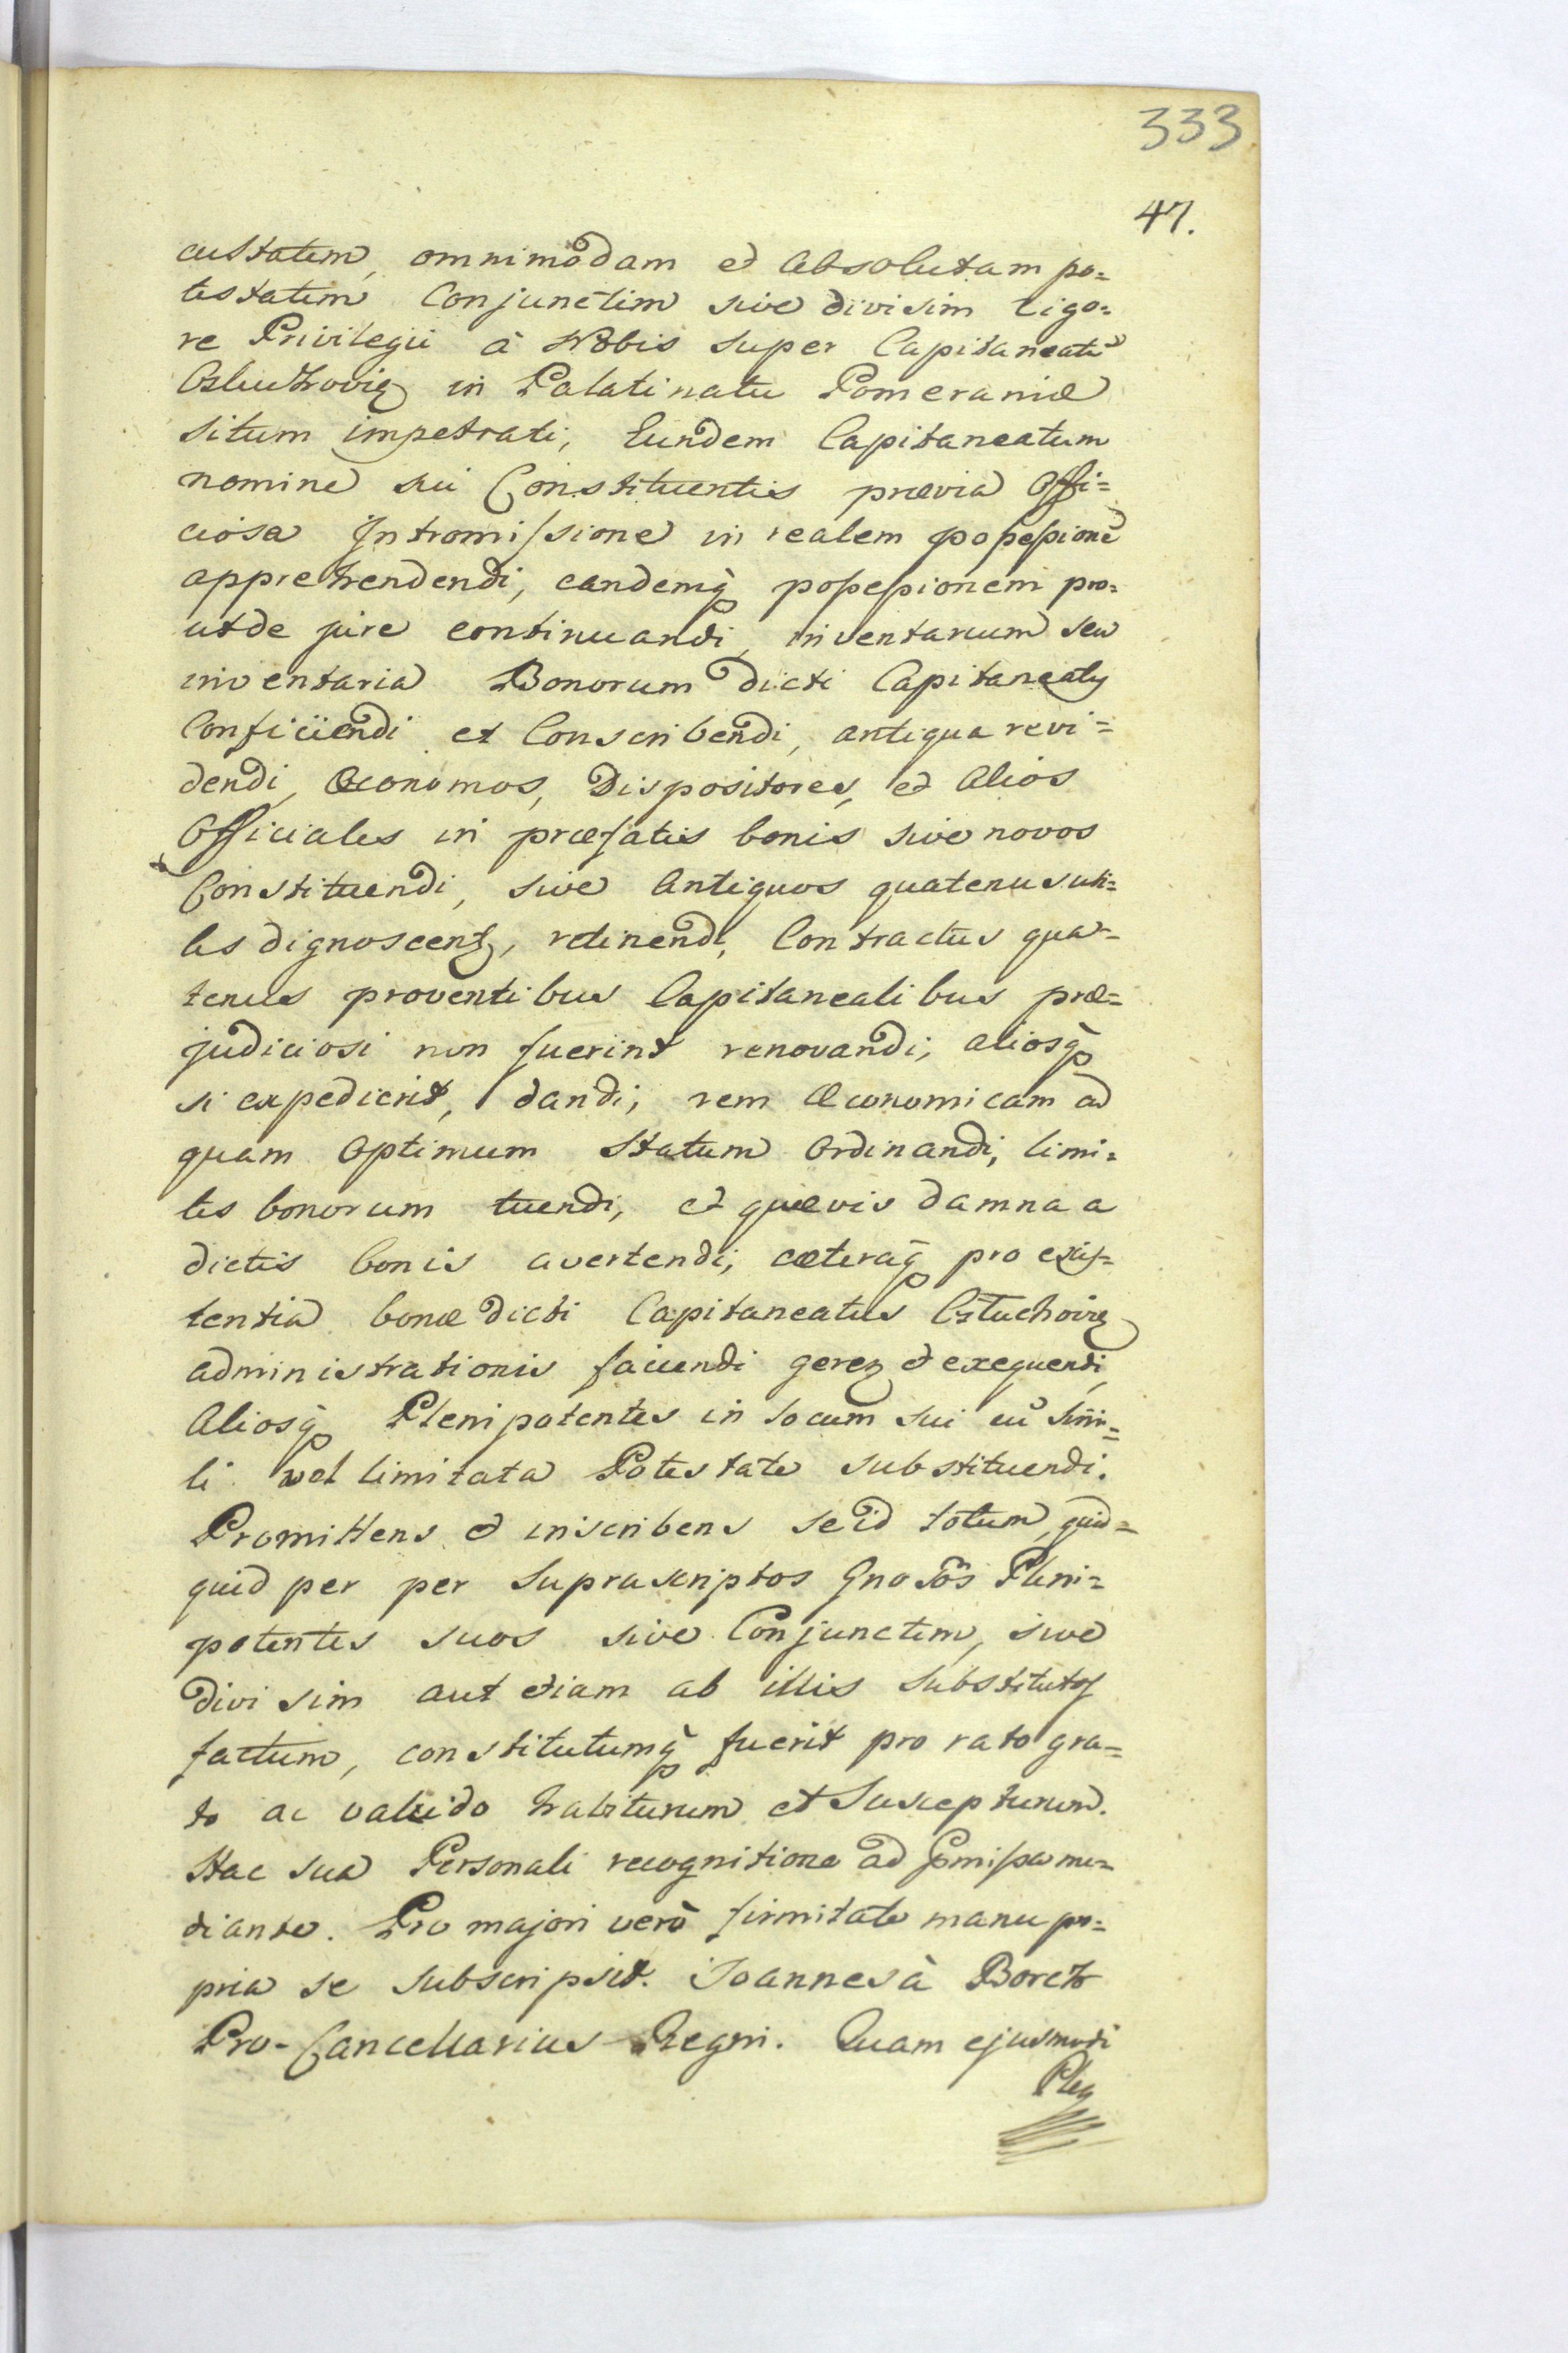 333
47.
cultatem, omnimodam et absolutam po=
testatem Conjunctim sive divisim vigo=
re Privilegii à Nobis super Capitaneatũ
Człuchovię in Palatinatu Pomeraniæ
situm impetrati, Eundem Capitaneatum
nomine sui Constituentis prævia Offi=
ciosa Intromissione in realem possessionẽ
apprehendendi, eandemq̃ possessionem pro=
ut de jure continuandi, inventarium seu
inventaria Bonorum dicti Capitaneatus
Conficiendi et Conscribendi, antiqua revi=
dendi, Œconomos, Dispositores, et Alios
Officiales in præfatis bonis sive novos
Constituendi, sive Antiquos quatenus uti=
les dignoscent, retinendi, Contractus qua=
tenus proventibus Capitanealibus præ=
judiciosi non fuerint renovandi; aliosq̃
si expedierit, dandi; rem Œconomicam ad
quam Optimum Statum Ordinandi, limi=
tes bonorum tuendi, et quævis damna a
dictis bonis avertendi, cæteraq̃ pro exis=
tentia bonæ dicti Capitaneatus Człuchovię
administrationis faciendi gereñ et exequendi
Aliosq̃ Plenipotentes in locum sui cũ simi=
li vel limitata Potestate substituendi.
Promittens et inscribens se id totum, quid=
quid per per Suprascriptos Gnosõs Pleni=
potentes suos sive Conjunctim, sive
divisim aut etiam ab illis Substitutos
factum, constitutumq̃ fuerit pro rato gra=
to ac valido habiturum et Suscepturum.
Hac sua Personali recognitione ad præmissa me=
diante. Pro majori verò firmitate manu pro=
pria se subscripsit. Joannes à Borch
Pro-Cancellarius Regni. Quam ejusmodi